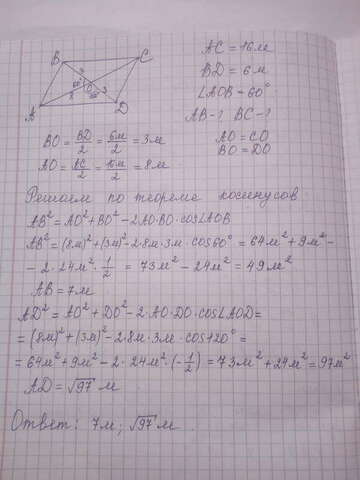 B C
3 60° O 3
8 60°
A D
AC = 16м
BD = 6м
∠AOB = 60°
AB-? BC-?
AO = CO
BO = DO
BO = BD/2 = 6м/2 = 3м
AO = AC/2 = 16м/2 = 8м
Решаем по теореме косинусов
AB² = AO² + BO² - 2AO·BO·cos∠AOB
AB² = (8м)² + (3м)² - 2·8м·3м·cos60° = 64м² + 9м² -
- 2·24м²·1/2 = 73м² - 24м² = 49м²
AB = 7м
AD² = AO² + DO² - 2·AO·DO·cos∠AOD =
= (8м)² + (3м)² - 2·8м·3м·cos120° =
= 64м² + 9м² - 2·24м²·(-1/2) = 73м² + 24м² = 97м²
AD = √97 м
Ответ: 7м; √97 м.